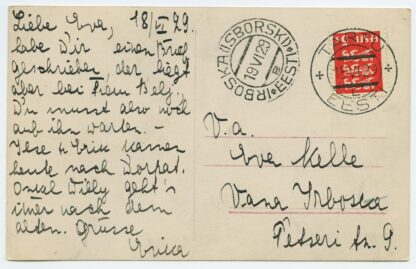 Liebe Eva, 18/VI 29.
habe Dir einen Brief
geschrieben der liegt
aber bei Frau Belg.
Du musst also noch
auf ihn warten. –
Ilse & Erik kamen
heute nach Dorpat.
Onkel Willy geht's
immer nach dem
alten. Grüsse
Erica
IRBOSKA (ISBORSK) EESTI
19 VI 29
B
TARTU
EESTI
V.a.
Eva Kelle
Vana Irboska
Petseri